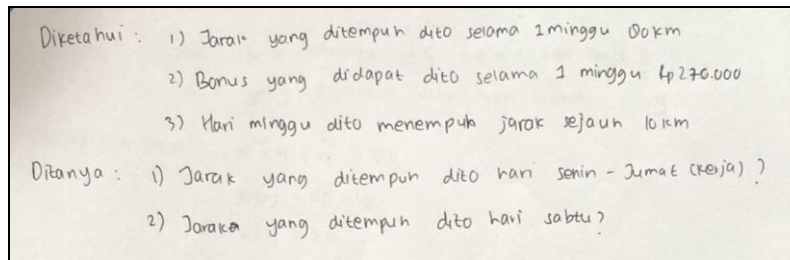 Diketahui : 1) Jarak yang ditempuh dito selama 1 minggu 00 km
2) Bonus yang didapat dito selama 1 minggu Rp 270.000
3) Hari minggu dito menempuh jarak sejauh 10 km
Ditanya : 1) Jarak yang ditempuh dito hari senin - Jumat (kerja) ?
2) Jarak yang ditempuh dito hari sabtu ?